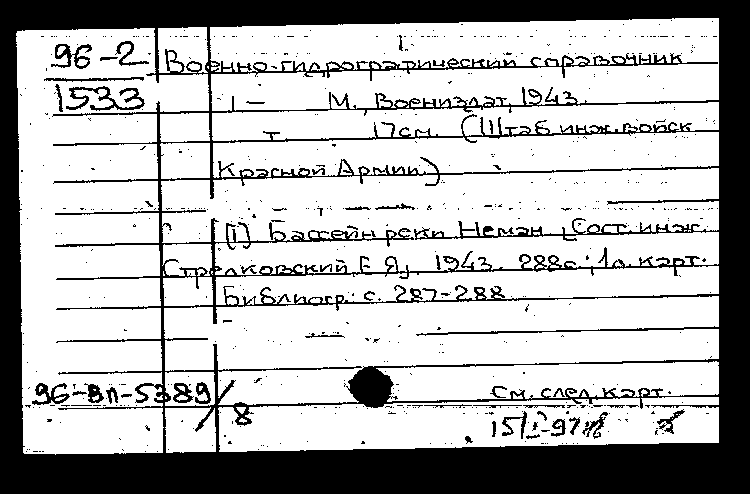 1.
96-2 Военно-гидрографический справочник
1533 1 — М., Воениздат, 1943.
т 17см. (Штаб инж. войск
Красной Армии)
[1] Бассейн реки Неман [Сост. инж.
Стрелковский, Е Я], 1943. 288с.; 1л. карт.
Библиогр: с. 287-288
96-8п-5389/8 См. след. карт.
15/I-97